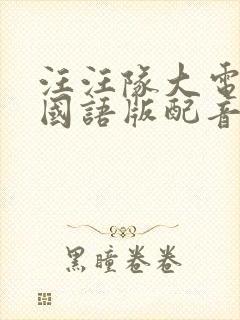 汪汪隊大電
國語版配音
黑瞳卷卷